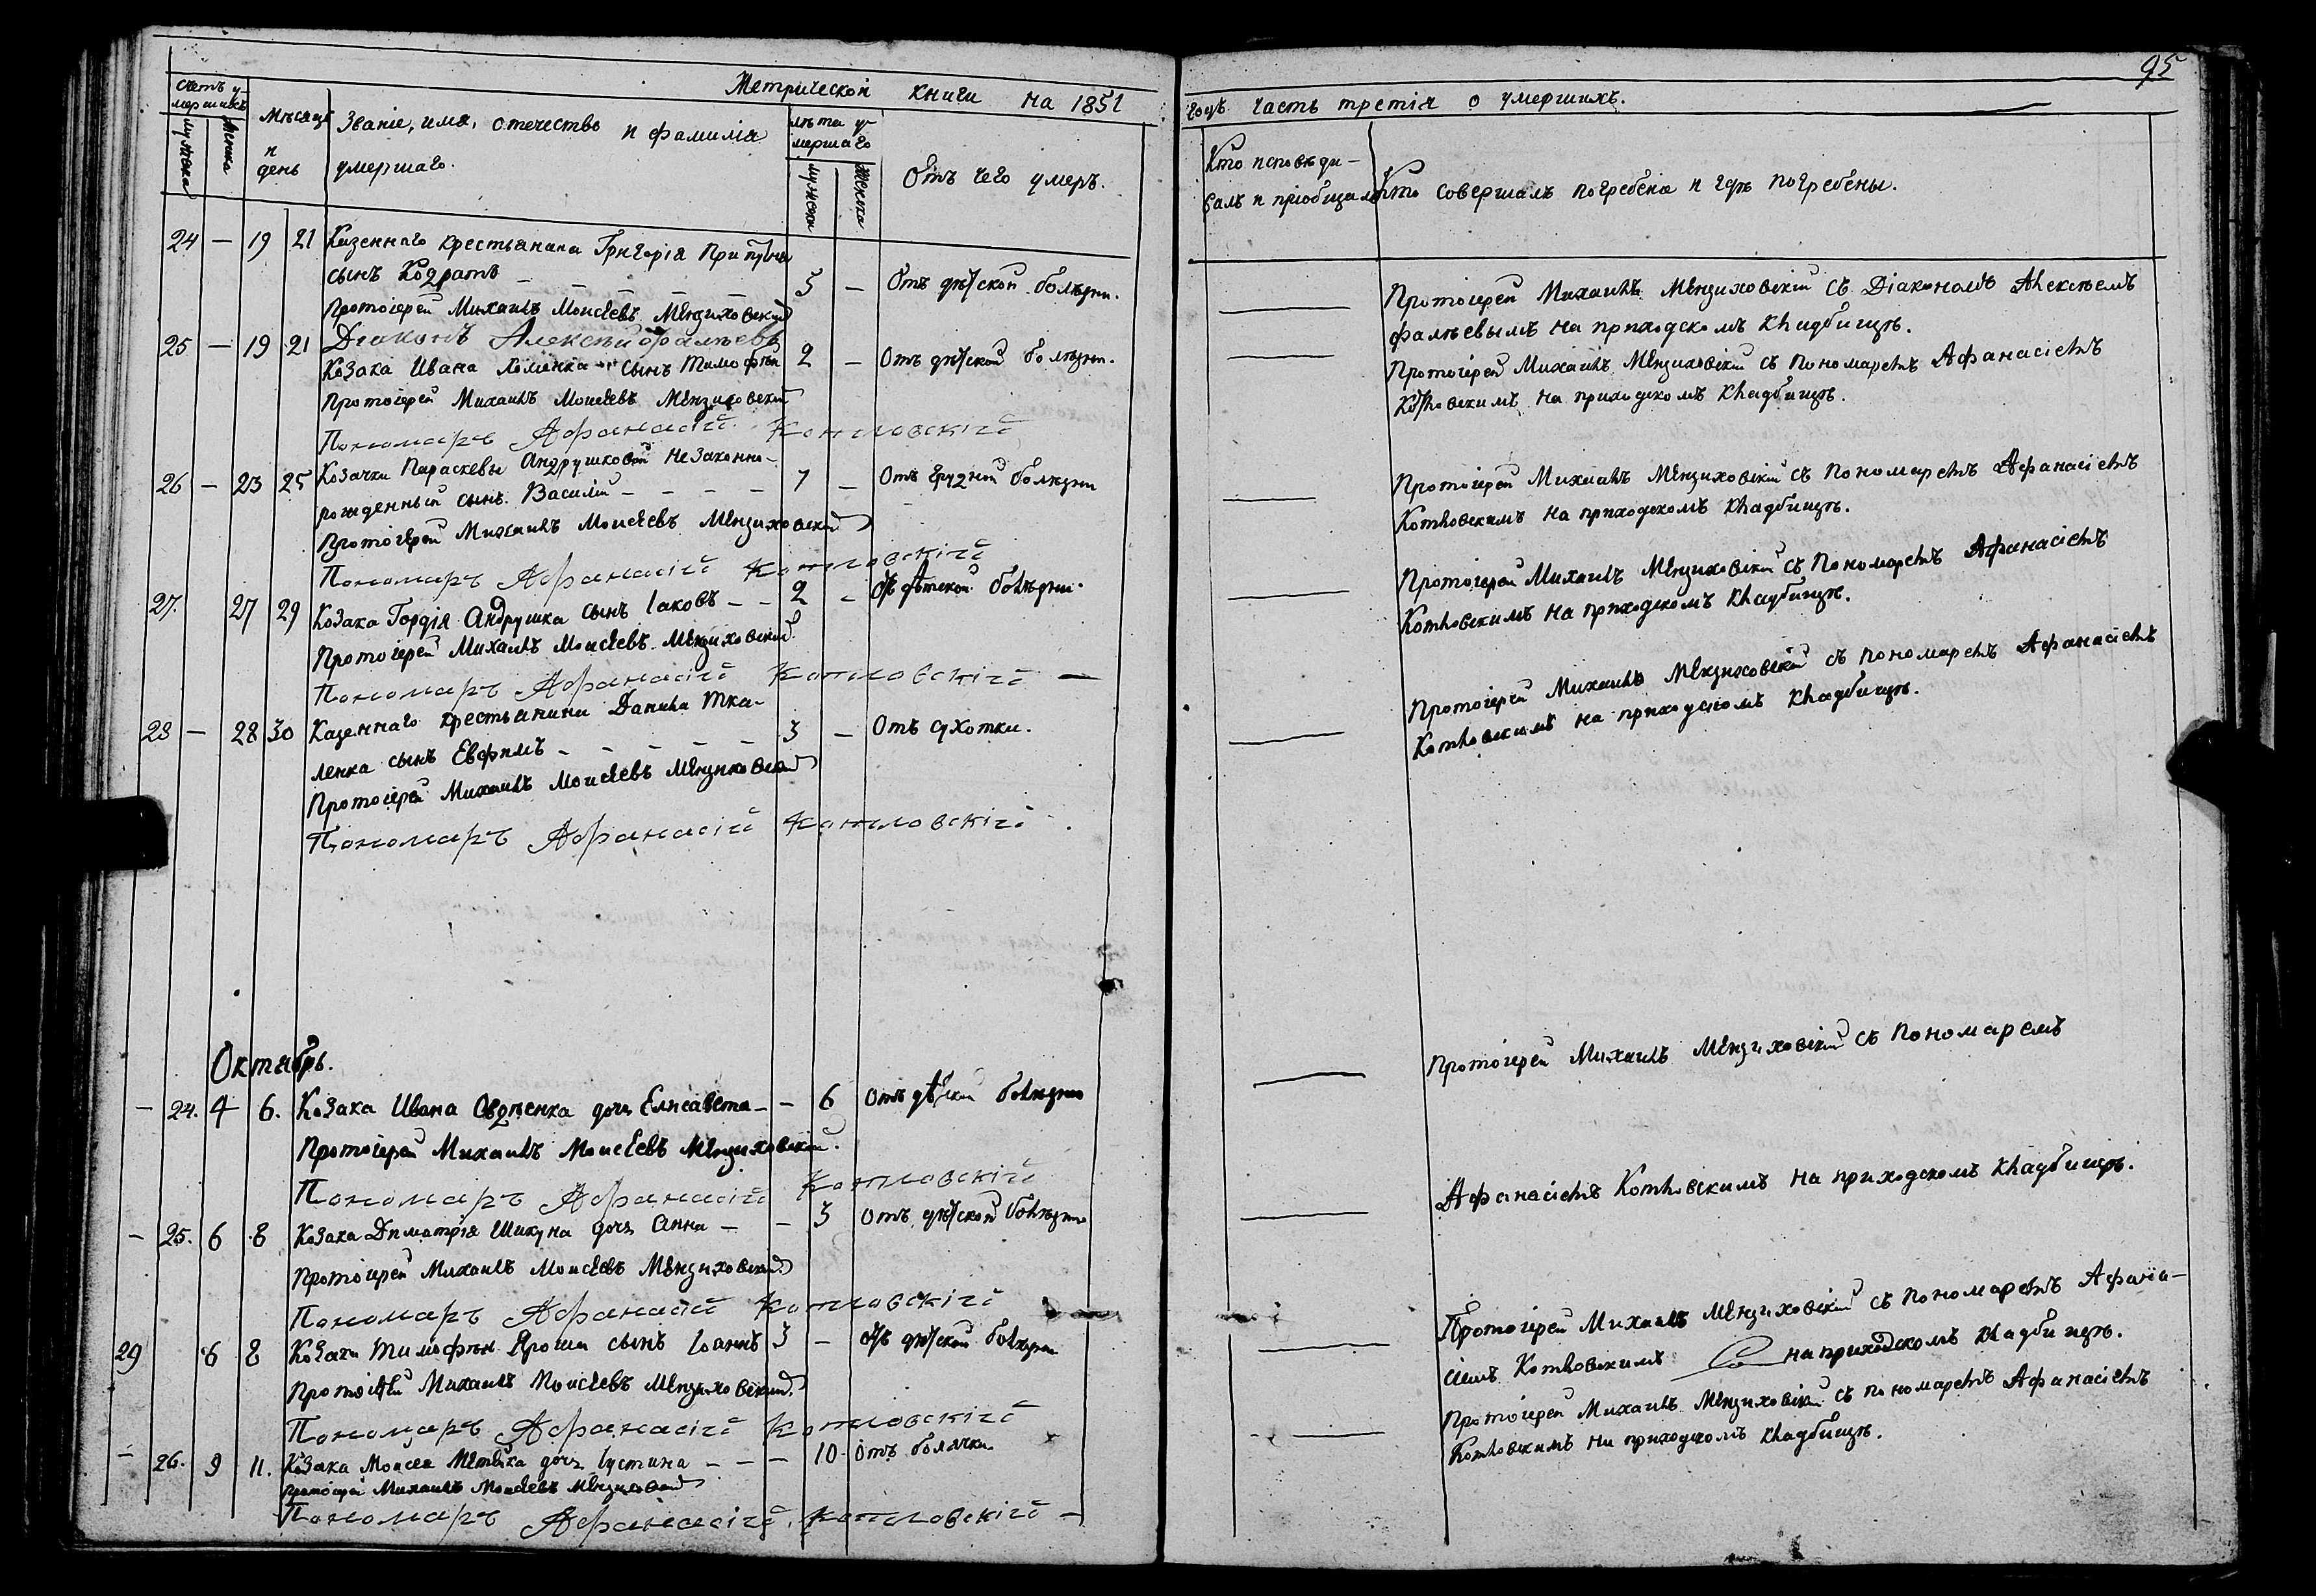 Метрической книги на 1851
счетъ у-
мершихъ
мужска
женска
Мѣсяцъ
и
день
Званіе, имя, отечество и фамилія
умершаго.
лѣта у-
мершаго
мужска
женска
Отъ чего умеръ.
24 — 19 21 Казеннаго крестьянина Григорія
сынъ Кодратъ — — — 3 — Отъ дѣтской болѣзни.
Протоіерей Михаилъ Моисеевъ Мензиховскій
Діаконъ Алексѣй Фалѣевъ
25 — 19 21 Козака Ивана Хоменка сынъ Тимофѣй 2 — Отъ дѣтской болѣзни.
Протоіерей Михаилъ Моисеевъ Мензиховскій
Пономаръ Афанасій Котловскій
26 — 23 25 Козачки Параскевы Андрушковой незаконно-
рожденный сынъ Василій — — — — 1 — Отъ грудной болѣзни
Протоіерей Михаилъ Моисеевъ Мензиховскій
Пономаръ Афанасій Котловскій
27. 27 29 Козака Гордія Андрушка сынъ Іаковъ — — 2 — Отъ дѣтской болѣзни.
Протоіерей Михаилъ Моисеевъ Мензиховскій.
Пономаръ Афанасій Котловскій —
28 — 28 30 Казеннаго крестьянина Данила Тка-
ленка сынъ Евфимъ — — — — — 3 — Отъ сухотки.
Протоіерей Михаилъ Моисеевъ Мензиховскій
Пономаръ Афанасій Котловскій.
Октябрь.
— 24. 4 6. Козака Ивана дочь Елисавета — — 6 Отъ дѣтской болѣзни
Протоіерей Михаилъ Моисеевъ Мензиховскій.
Пономаръ Афанасій Котловскій
— 25. 6 8 Козака Димитрія Шикуна дочь Анна — — 3 Отъ дѣтской болѣзни
Протоіерей Михаилъ Моисеевъ Мензиховскій.
Пономаръ Афанасій Котловскій
29 6 8 Козака Тимофѣя Яроша сынъ Іоаннъ 3 — Отъ дѣтской болѣзни
Протоіерей Михаилъ Моисеевъ Мензиховскій.
Пономаръ Афанасій Котловскій
— 26. 9 11. Козака Моисея дочь Іустина — — — 10 Отъ болячки
Протоіерей Михаилъ Моисеевъ Мензиховскій
Пономаръ Афанасій Котловскій —
95
годъ часть третія о умершихъ.
Кто исповѣды-
валъ и пріобщалъ
Кто совершалъ погребеніе и гдѣ погребены.
— Протоіерей Михаилъ Мензиховскій съ Діакономъ Алексѣемъ
Фалѣевымъ на приходскомъ кладбищѣ.
— Протоіерей Михаилъ Мензиховскій съ Пономаремъ Афанасіемъ
Котловскимъ на приходскомъ кладбищѣ.
— Протоіерей Михаилъ Мензиховскій съ Пономаремъ Афанасіемъ
Котловскимъ на приходскомъ кладбищѣ.
— Протоіерей Михаилъ Мензиховскій съ Пономаремъ Афанасіемъ
Котловскимъ на приходскомъ кладбищѣ.
— Протоіерей Михаилъ Мензиховскій съ Пономаремъ Афанасіемъ
Котловскимъ на приходскомъ кладбищѣ.
— Протоіерей Михаилъ Мензиховскій съ Пономаремъ
— Афанасіемъ Котловскимъ на приходскомъ кладбищѣ.
— Протоіерей Михаилъ Мензиховскій съ Пономаремъ Афана-
сіемъ Котловскимъ — на приходскомъ кладбищѣ.
— Протоіерей Михаилъ Мензиховскій съ Пономаремъ Афанасіемъ
Котловскимъ на приходскомъ кладбищѣ.